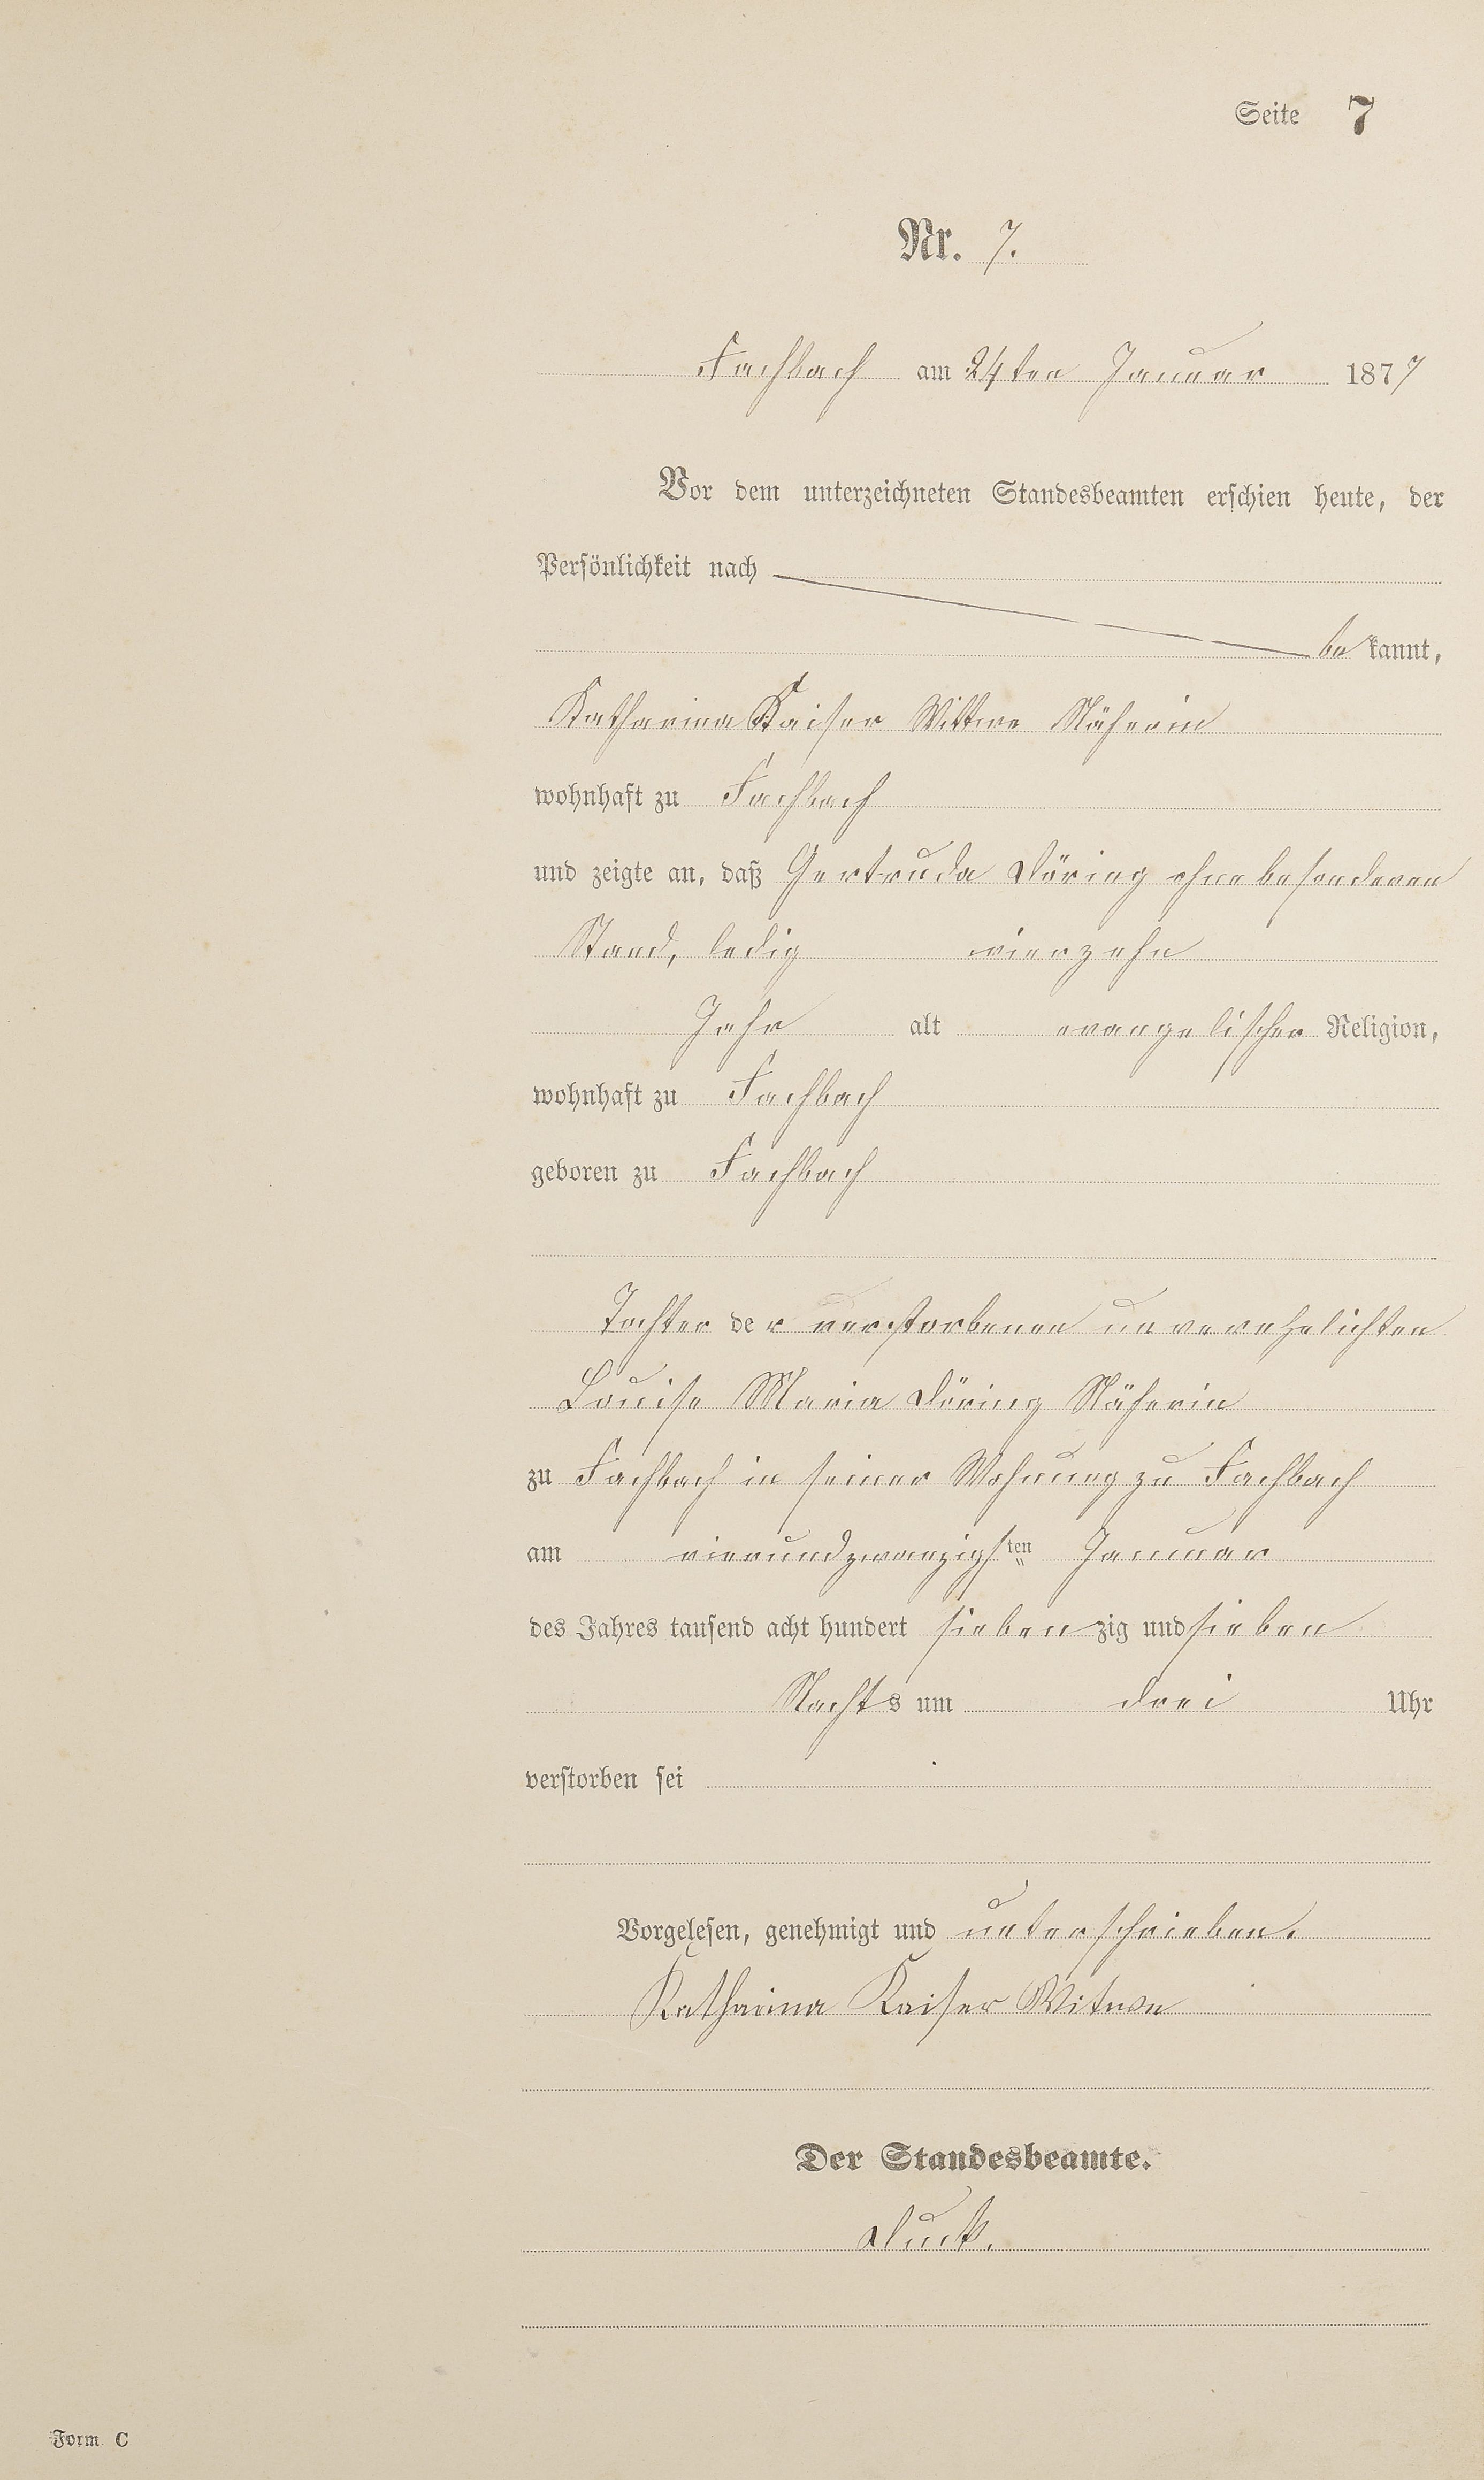 Seite 7
Nr. 7.
Fachbach am 24ten Januar 1877
Vor dem unterzeichneten Standesbeamten erschien heute, der
Persönlichkeit nach
bekannt,
Katharina Kaiser Wittwe Näherin
wohnhaft zu Fachbach
und zeigte an, daß Gertruda Döring ohne besonderen
Stand, ledig vierzehn
Jahr alt evangelischer Religion,
wohnhaft zu Fachbach
geboren zu Fachbach
Tochter der verstorbenen unverehelichten
Louise Maria Döring Näherin
zu Fachbach in seiner Wohnung zu Fachbach
am vierundzwanzigsten Januar
des Jahres tausend acht hundert siebenzig und sieben
Nachts um drei Uhr
verstorben sei
Vorgelesen, genehmigt und unterschrieben.
Katharina Kaiser Witwe
Der Standesbeamte.
Form C